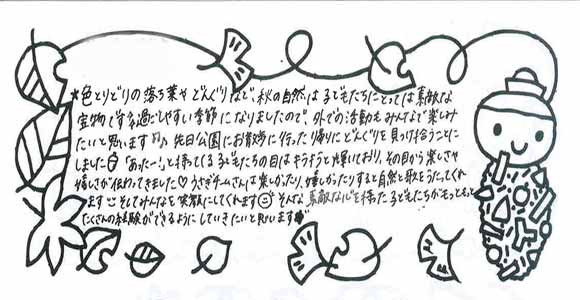 ★色とりどりの落ち葉やどんぐりなど、秋の自然は子どもたちにとっては素敵な
宝物です。過ごしやすい季節になりましたので、外での活動もみんなで楽しみ
たいと思います♪先日公園にお散歩に行った帰りにどんぐりを見つけ拾うことに
しました「あった〜！」と持ってくる子どもたちの目はキラキラと輝いており、その目から楽しさや
嬉しさが伝わってきました♡うさぎチームさんは楽しかったり、嬉しかったりすると自然と歌をうたってくれ
ます そしてみんなを笑顔にしてくれます そんな素敵な心を持った子どもたちがもっともっと
たくさんの経験ができるようにしていきたいと思います